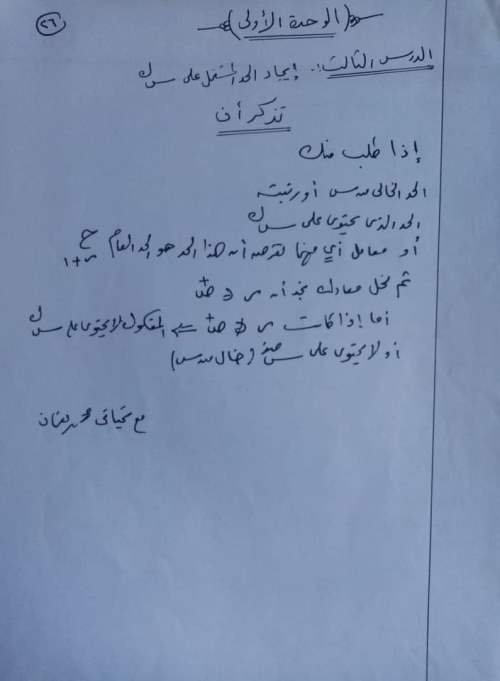 ٢٦
(الوحدة الأولى)
الدرس الثالث:. إيجاد الحد المشتمل على س ك
تذكر أن
إذا طلب منك
الحد الخالى من س أو رتبته
الحد الذى يحتوى على س ك
أو معامل أي منهما نفرض أن هذا الحد هو الحد العام ح ر+١
ثم نحل معادلة نجد أن ر ∈ ص+
أما إذا كانت ر ∉ ص+ ⇐ المفكوك لا يحتوى على س ك
أو لا يحتوى على س صفر (خال من س)
مع تحياتى